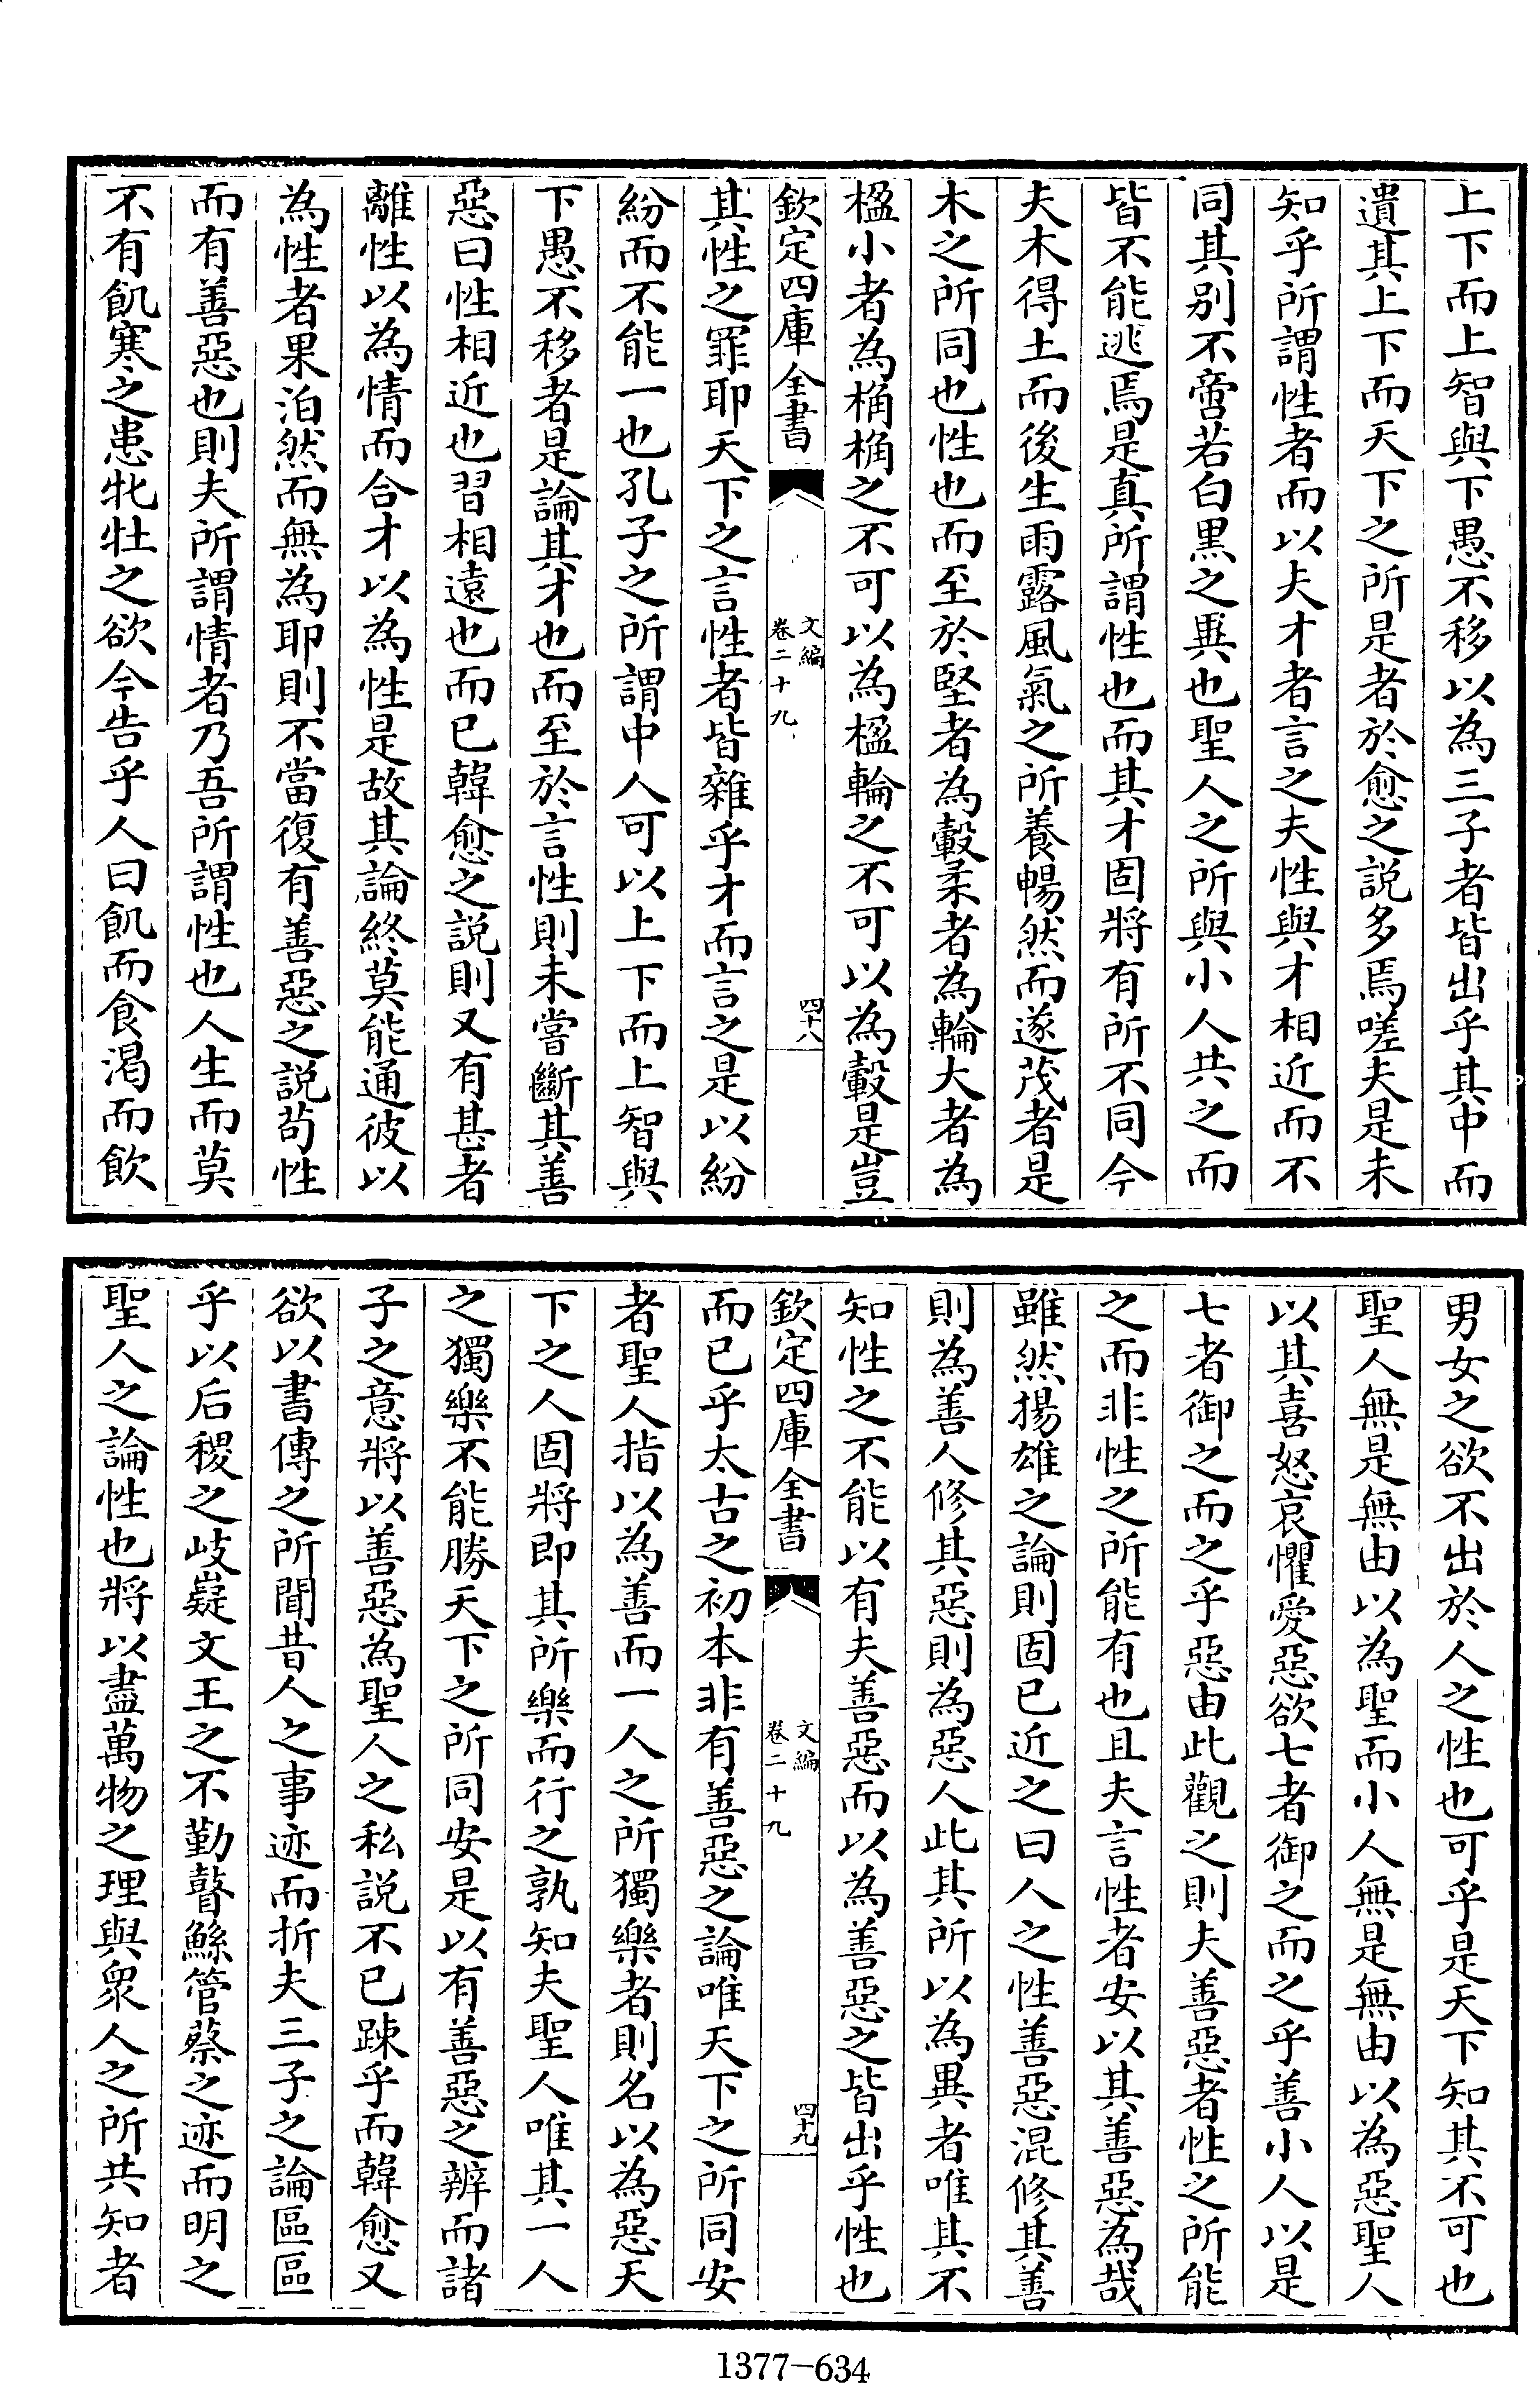 上下而上智與下愚不移以為三子者皆出乎其中而
遺其上下而天下之所是者於愈之説多焉嗟夫是未
知乎所謂性者而以夫才者言之夫性與才相近而不
同其别不啻若白黒之異也聖人之所與小人共之而
皆不能逃焉是真所謂性也而其才固將有所不同今
夫木得土而後生雨露風氣之所養暢然而遂茂者是
木之所同也性也而至於堅者為轂柔者為輪大者為
楹小者為桷桷之不可以為楹輪之不可以為轂是豈
欽定四庫全書
文編
卷二十九
四十八
其性之罪耶天下之言性者皆雜乎才而言之是以紛
紛而不能一也孔子之所謂中人可以上下而上智與
下愚不移者是論其才也而至於言性則未嘗斷其善
惡曰性相近也習相遠也而已韓愈之説則又有甚者
離性以為情而合才以為性是故其論終莫能通彼以
為性者果泊然而無為耶則不當復有善惡之説苟性
而有善惡也則夫所謂情者乃吾所謂性也人生而莫
不有飢寒之患牝牡之欲今告乎人曰飢而食渴而飲
男女之欲不出於人之性也可乎是天下知其不可也
聖人無是無由以為聖而小人無是無由以為惡聖人
以其喜怒哀懼愛惡欲七者御之而之乎善小人以是
七者御之而之乎惡由此觀之則夫善惡者性之所能
之而非性之所能有也且夫言性者安以其善惡為哉
雖然揚雄之論則固已近之曰人之性善惡混修其善
則為善人修其惡則為惡人此其所以為異者唯其不
知性之不能以有夫善惡而以為善惡之皆出乎性也
欽定四庫全書
文編
卷二十九
四十九
而已乎太古之初本非有善惡之論唯天下之所同安
者聖人指以為善而一人之所獨樂者則名以為惡天
下之人固將即其所樂而行之孰知夫聖人唯其一人
之獨樂不能勝天下之所同安是以有善惡之辨而諸
子之意將以善惡為聖人之私説不已踈乎而韓愈又
欲以書傳之所聞昔人之事迹而折夫三子之論區區
乎以后稷之岐嶷文王之不勤瞽鯀管蔡之迹而明之
聖人之論性也將以盡萬物之理與衆人之所共知者
1377—634